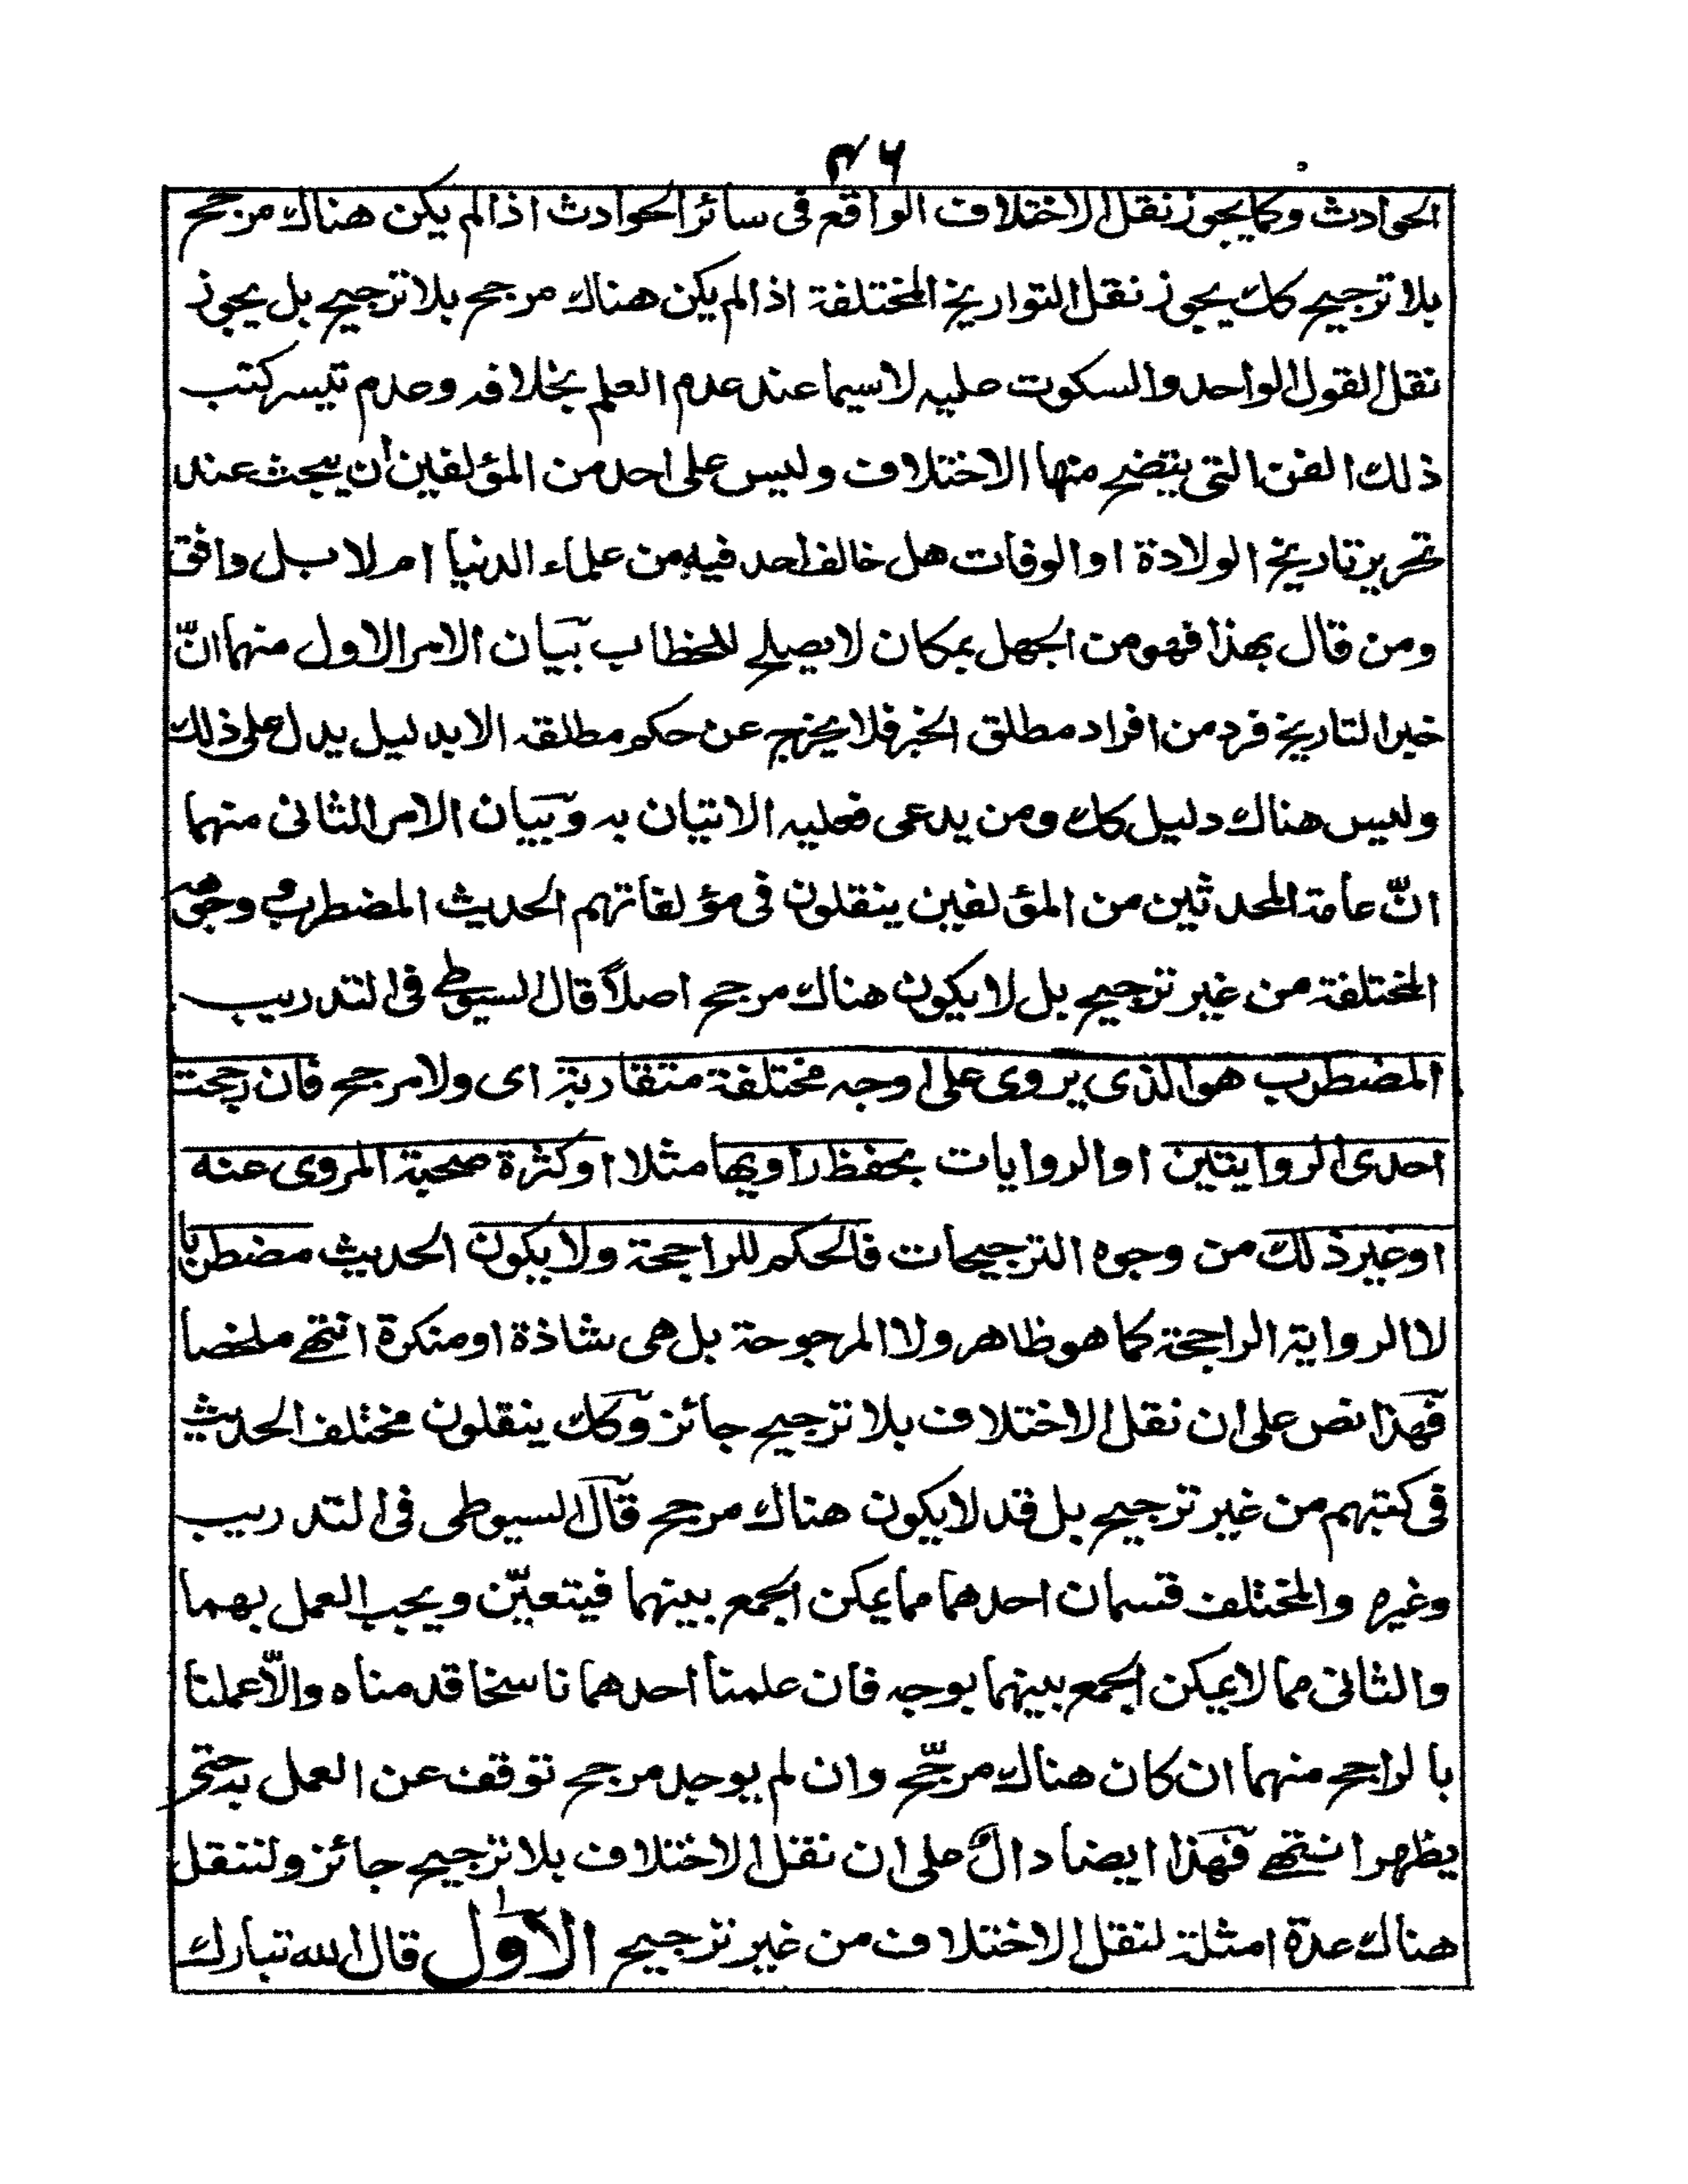 ۴۶
الحوادث وكما يجوز نقل الاختلاف الواقع فى سائر الحوادث اذا لم يكن هناك مرجح
بلا ترجيح كك يجوز نقل التواريخ المختلفة اذا لم يكن هناك مرجح بلا ترجيح بل يجوز
نقل القول الواحد والسكوت عليه لاسيما عند عدم العلم بخلافه وعدم تيسر كتب
ذلك الفن التى يتضح منها الاختلاف وليس على احد من المؤلفين أن يبحث عند
تحرير تاريخ الولادة او الوفات هل خالف احد فيه من علماء الدنيا ام لا بل وافق
ومن قال بهذا فهو من الجهل بمكان لا يصلح للخطاب بيان الامر الاول منهما انّ
خبر التاريخ فرد من افراد مطلق الخبر فلا يخرج عن حكم مطلقه الا بدليل يدل على ذلك
وليس هناك دليل كك ومن يدعى فعليه الاتيان به وبيان الامر الثانى منهما
انّ عامة المحدثين من المؤلفين ينقلون فى مؤلفاتهم الحديث المضطرب ووجوهه
المختلفة من غير ترجيح بل لا يكون هناك مرجح اصلاً قال السيوطى فى التدريب
المضطرب هو الذى يروى على اوجه مختلفة متقاربة اى ولا مرجح فان رجحت
احدى الروايتين او الروايات بحفظ راويها مثلا او كثرة صحبة المروى عنه
او غير ذلك من وجوه الترجيحات فالحكم للراجحة ولا يكون الحديث مضطربا
لا الرواية الراجحة كما هو ظاهر ولا المرجوحة بل هى شاذة او منكرة انتهى ملخصا
فهذا نص على ان نقل الاختلاف بلا ترجيح جائز وكك ينقلون مختلف الحديث
فى كتبهم من غير ترجيح بل قد لا يكون هناك مرجح قال السيوطى فى التدريب
وغيره والمختلف قسمان احدهما مما يمكن الجمع بينهما فيتعيّن ويجب العمل بهما
والثانى مما لا يمكن الجمع بينهما بوجه فان علمنا احدهما ناسخا قدمناه والّا عملنا
بالراجح منهما ان كان هناك مرجّح وان لم يوجد مرجح توقف عن العمل به حتى
يظهر انتهى فهذا ايضا دالّ على ان نقل الاختلاف بلا ترجيح جائز ولننقل
هناك عدة امثلة لنقل الاختلاف من غير ترجيح الاول قال الله تبارك